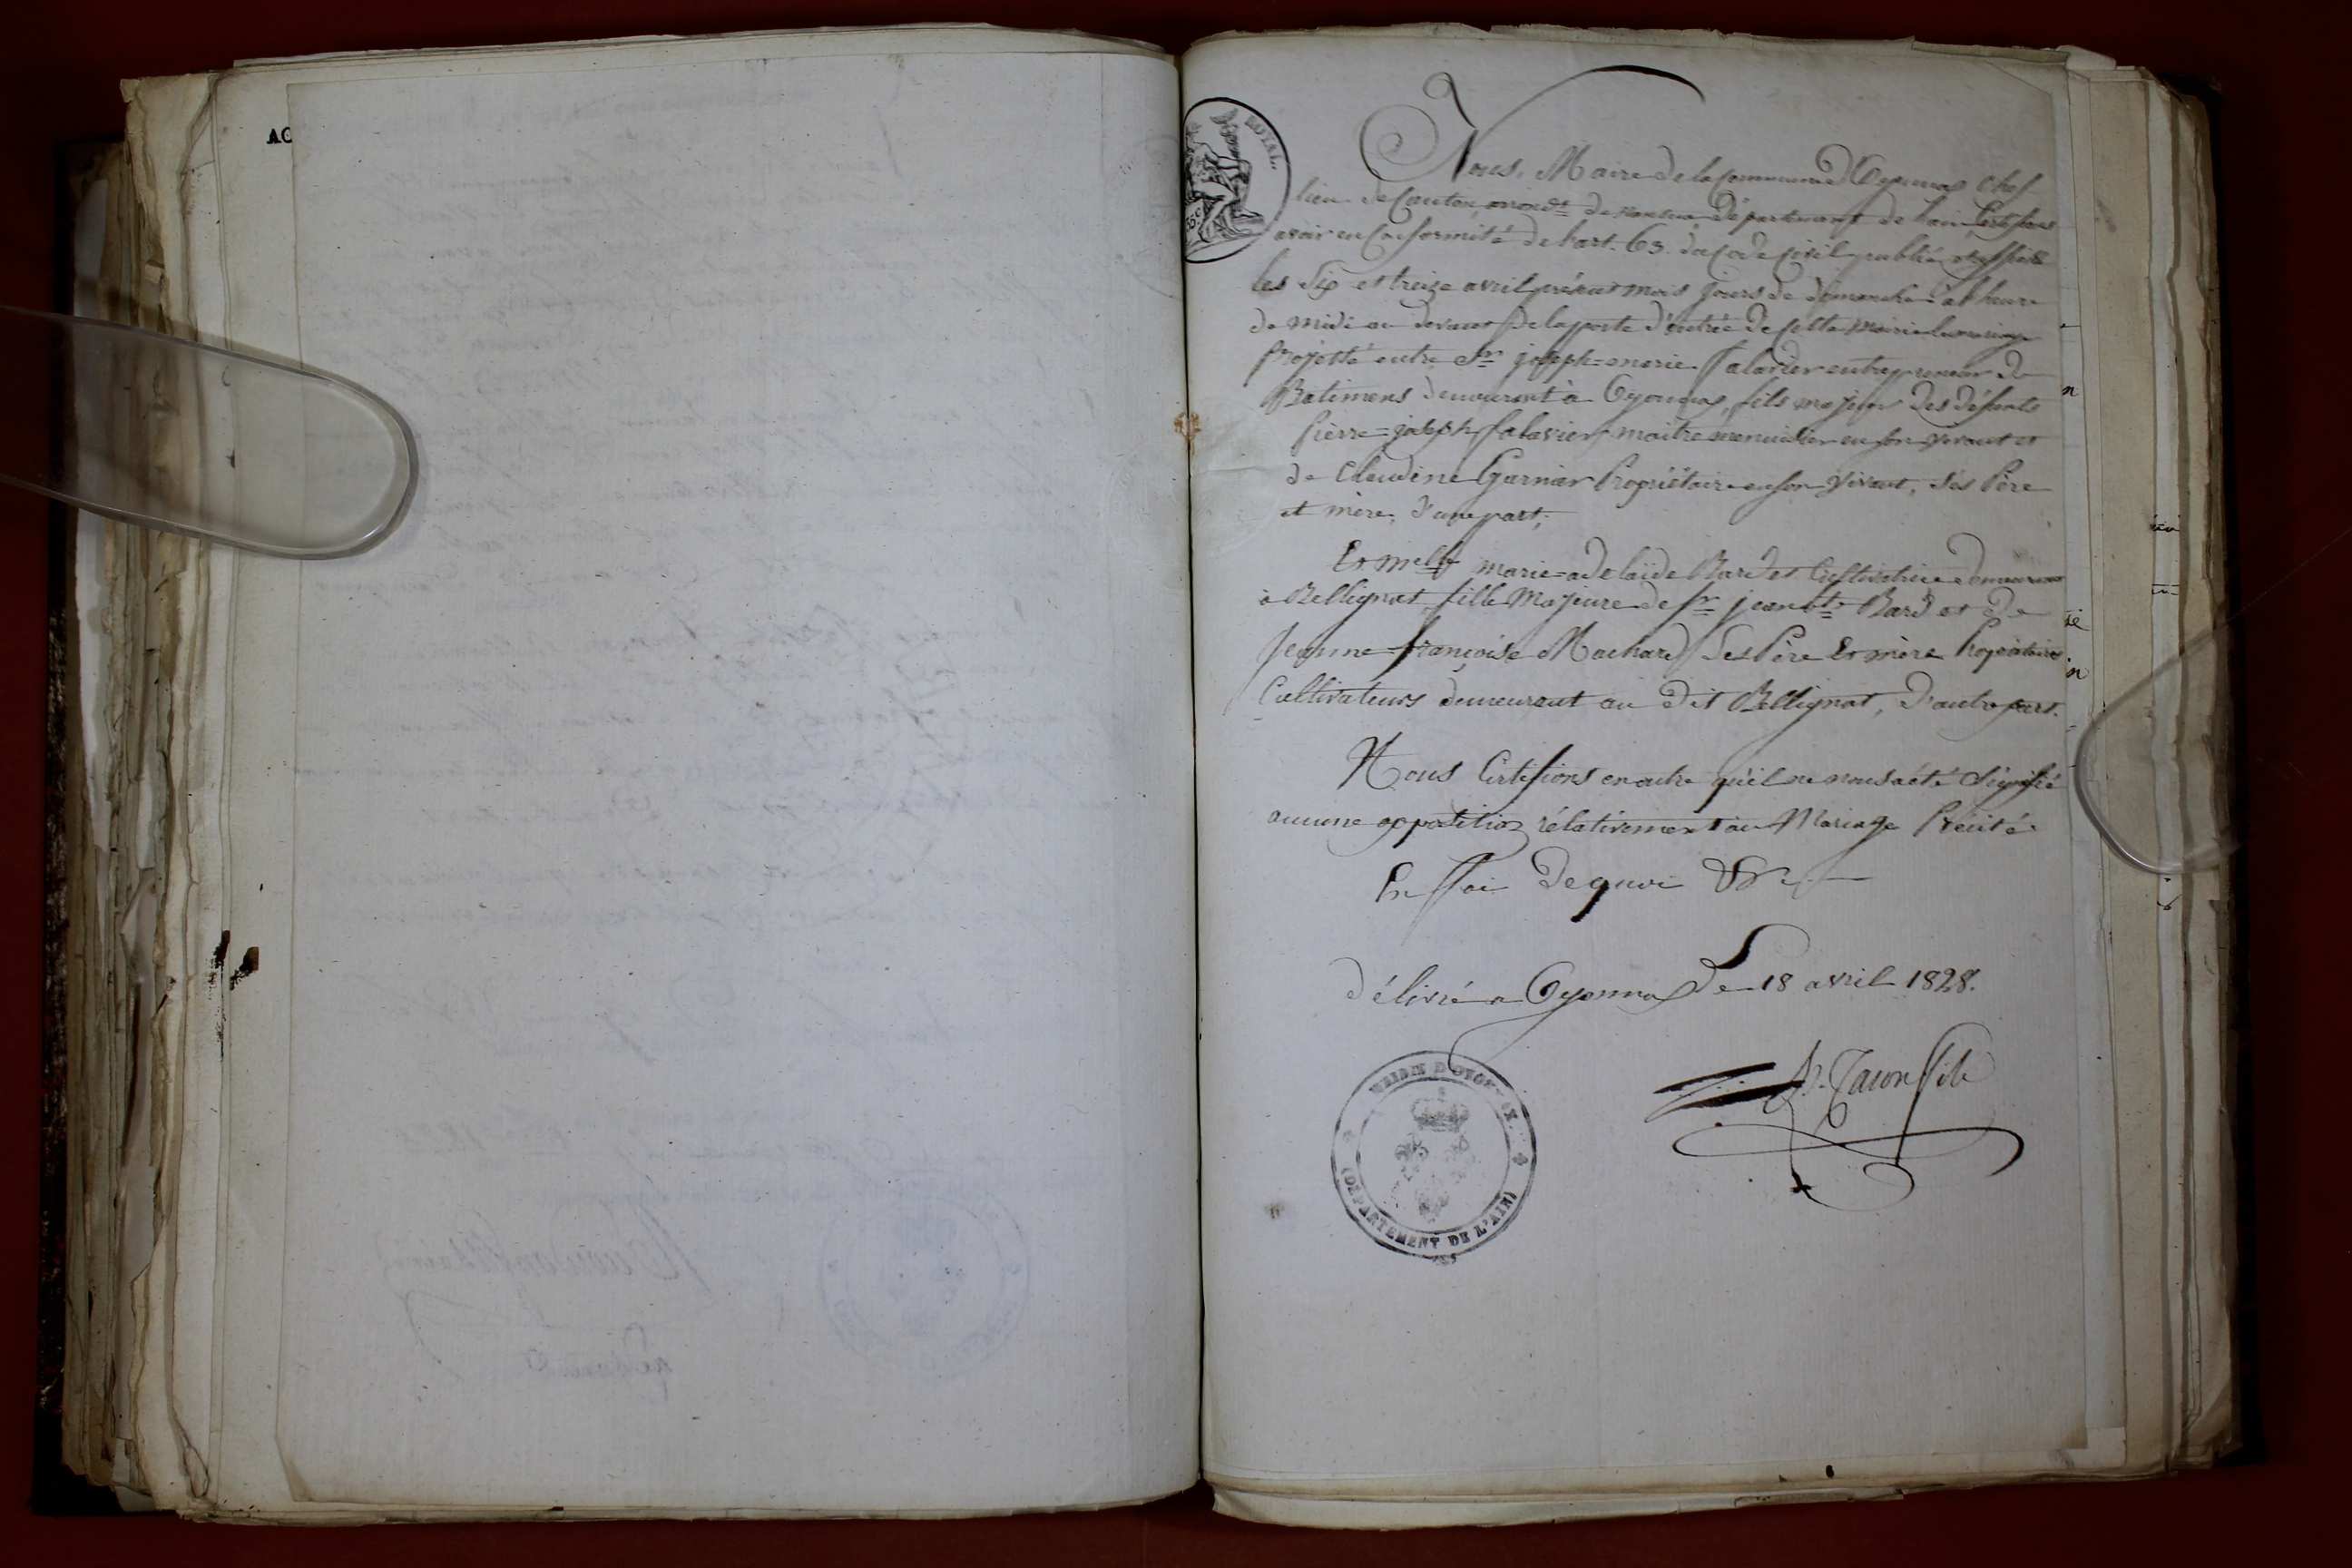 AC
ROYAL.
Nous, Maire de la Commune d'Oyonnax Chef
lieu de Canton, arrond.t de Nantua Département de l'ain, Certifions
avoir en Conformité de l'art. 63. du Code Civil publié et affiché
les Six et treize avril présent mois jours de dimanche a l'heure
de midi au devant de la porte d'entrée de cette Mairie le mariage
Projetté entre Sr joseph=marie entrepreneur de
Batimens demeurant à Oyonnax, fils majeur des défunts
Pierre=joseph maitre menuisier en son vivant et
de Claudine Garnier Propriétaire en son vivant, Ses Père
et mère, d'une part;
Et Melle marie=adelaïde Bard et Cultivatrice demeurant
à Bellignat, fille Majeure de Sr jean bte Bard et de
Jeanne=françoise Machard Ses Père Et mère Propriétaires
Cultivateurs demeurant au dit Bellignat, D'autre part.
Nous Certifions en outre qu'il ne nous a été Signifié
aucune opposition rélativement au Mariage Précité
En foi de quoi &c.
délivré a Oyonnax le 18 avril 1828.
fils
MAIRIE D'OYONNAX.
(DÉPARTEMENT DE L'AIN)